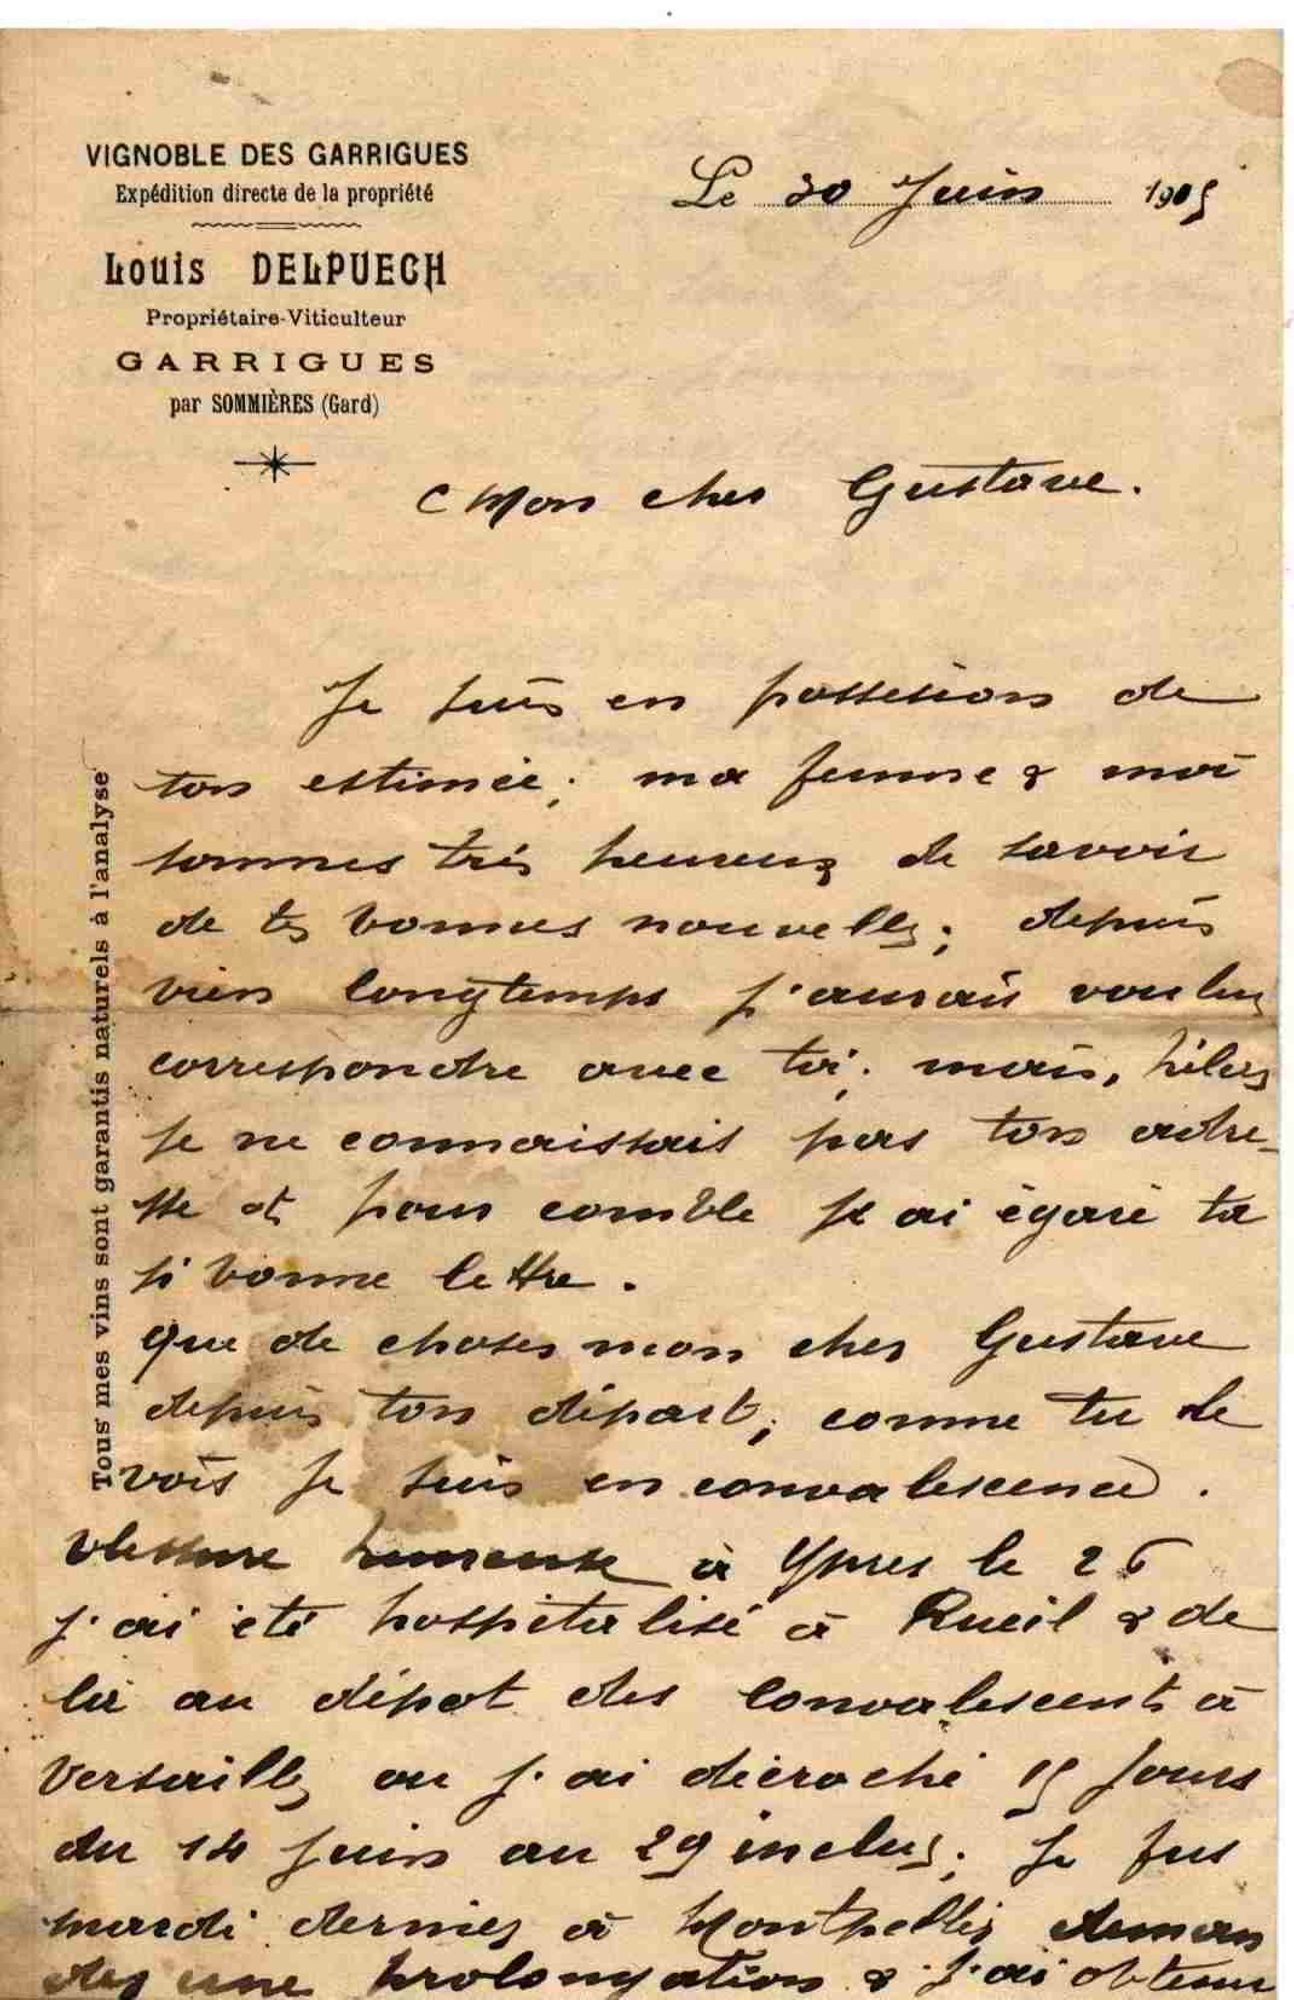 VIGNOBLE DES GARRIGUES
Expédition directe de la propriété
Louis DELPUECH
Propriétaire-Viticulteur
GARRIGUES
par SOMMIÈRES (Gard)
Le 30 Juin 1905
Mon cher Gustave.
Je suis en possession de
ton estimée; ma femme & moi
sommes très heureux de savoir
de tes bonnes nouvelles; depuis
bien longtemps j'aurais voulu
correspondre avec toi; mais, hélas
je ne connaissais pas ton adre-
sse et pour comble je ai égaré ta
si bonne lettre.
que de choses mon cher Gustave
depuis ton départ; comme tu le
vois je suis en convalescence.
blessure à Ypres le 26
j'ai été hospitalisé à Rueil & de
là au dépot des convalescents à
Versailles ou j'ai décroché 15 jours
du 14 juin au 29 inclus; je fus
mardi dernier à Montpellier deman
der une prolongation & j'ai obtenu
Tous mes vins sont garantis naturels à l'analyse